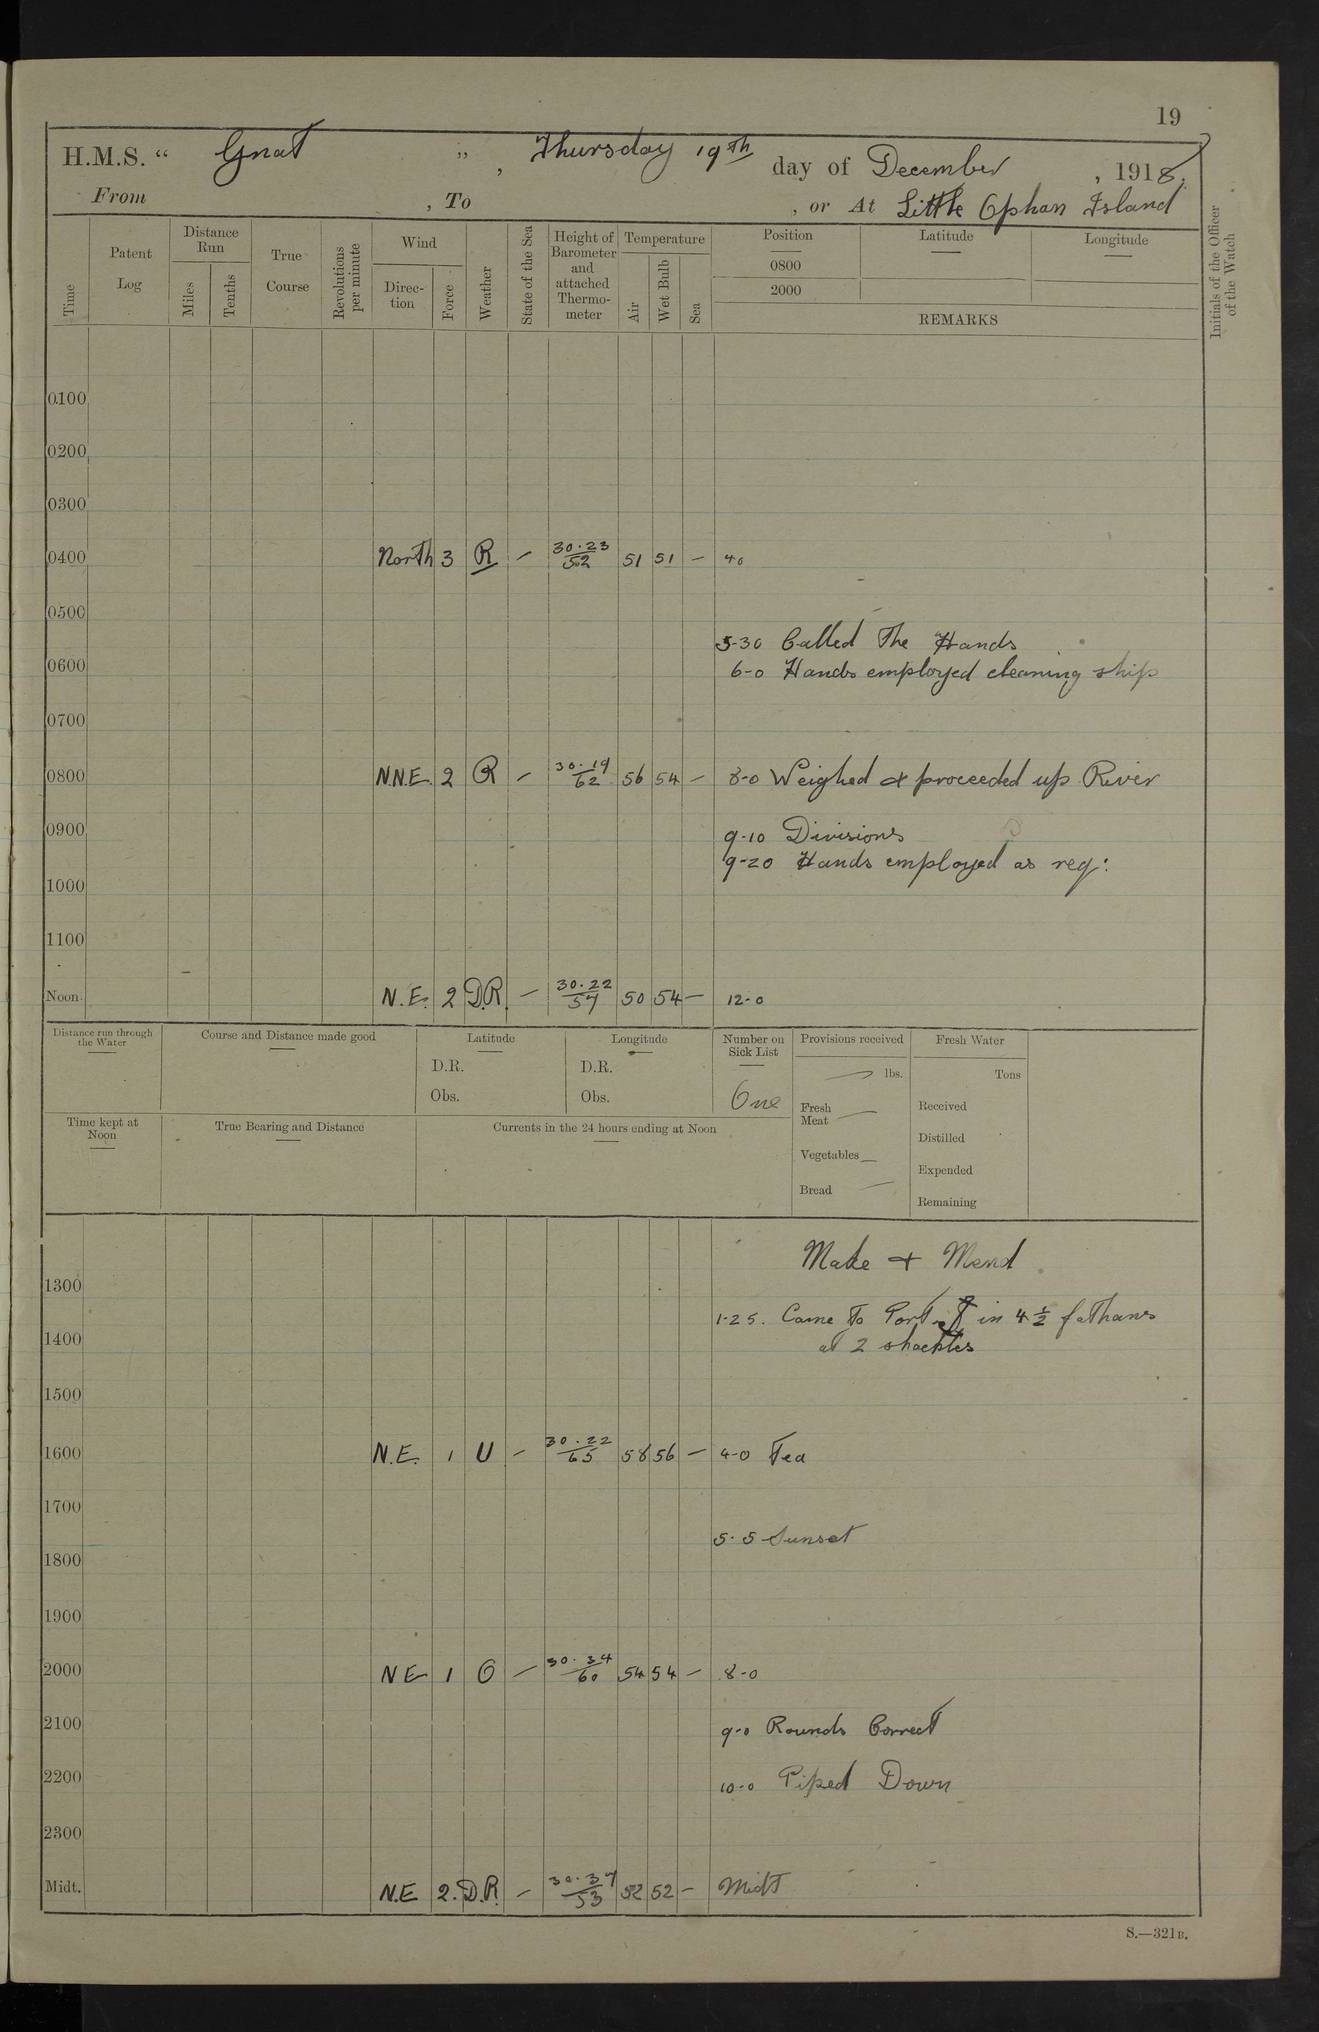 19
H.M.S. " Gnat ", Thursday 19th day of December, 1918.
From , To , or At Little Ophan Island
Time
Patent Log
Distance Run
Miles
Tenths
True Course
Revolutions per minute
Wind
Direc-tion
Force
Weather
State of the Sea
Height of Barometer and attached Thermo-meter
Temperature
Air
Wet Bulb
Sea
Position
0800
2000
Latitude
Longitude
REMARKS
Initials of the Officer of the Watch
0100
0200
0300
0400 North 3 R — 30.23/52 51 51 — 4.0
0500
5-30 Called The Hands
0600
6-0 Hands employed cleaning ship
0700
0800 N.N.E. 2 R — 30.19/62 56 54 — 8-0 Weighed & proceeded up River
0900
9-10 Divisions
9-20 Hands employed as req:
1000
1100
Noon N.E. 2 D.R. — 30.22/57 50 54 — 12-0
Distance run through the Water
Course and Distance made good
Latitude
D.R.
Obs.
Longitude
D.R.
Obs.
Number on Sick List
One
Provisions received
— lbs.
Fresh Meat —
Vegetables —
Bread —
Fresh Water
Tons
Received
Distilled
Expended
Remaining
Time kept at Noon
True Bearing and Distance
Currents in the 24 hours ending at Noon
Make & Mend
1300
1-25. Came To Port in 4 1/2 fathams
1400
at 2 shackles
1500
1600 N.E. 1 U — 30.22/65 58 56 — 4-0 Tea
1700
5.5 Sunset
1800
1900
2000 NE 1 O — 30.34/60 54 54 — 8-0
2100
9-0 Rounds Correct
2200
10-0 Piped Down
2300
Midt. N.E 2. D.R. — 30.37/53 52 52 — Midt
S.—321B.